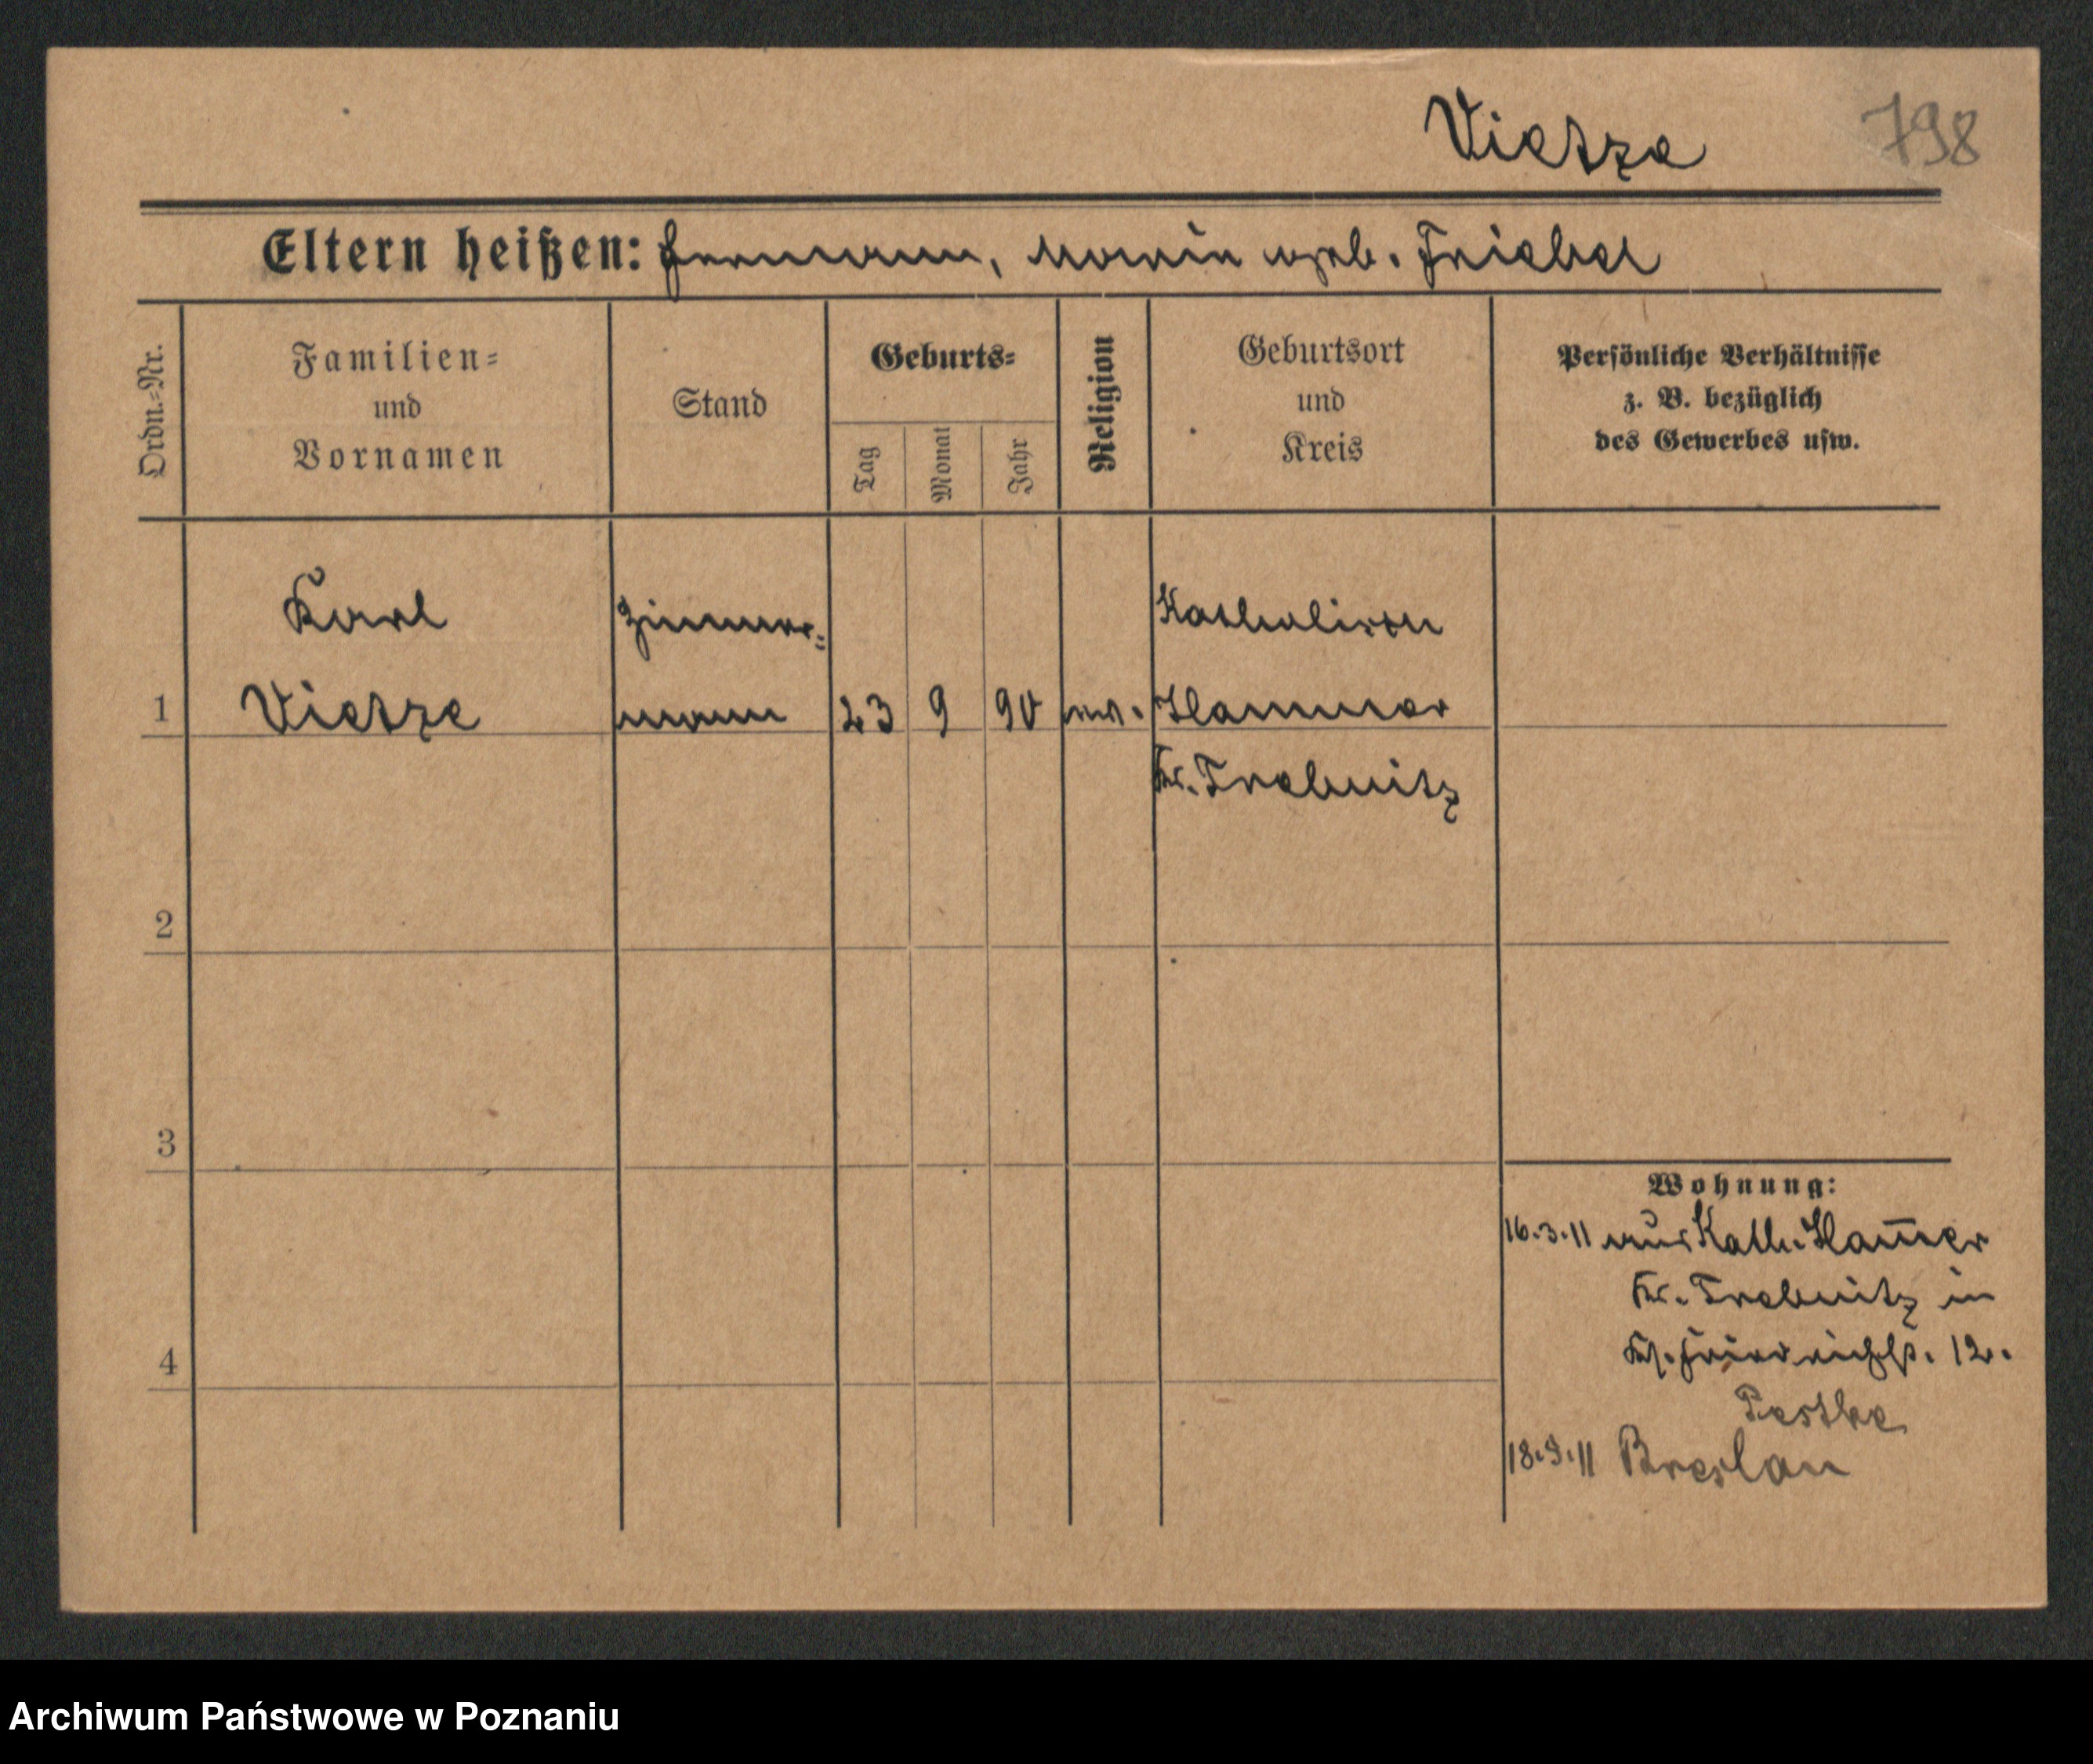 Vietze 798
Eltern heißen: Hermann, Maria geb. Friebel
Ordn.=Nr.
Familien=
und
Vornamen
Stand
Geburts=
Tag
Monat
Jahr
Religion
Geburtsort
und
Kreis
Persönliche Verhältnisse
z. B. bezüglich
des Gewerbes usw.
Karl Zimmer= Katholisch
1 Vietze mann 23 9 90 ev. Hammer
Kr. Trebnitz
2
3
4
Wohnung:
16.3.11 aus Kath. Ham̅er
Kr. Trebnitz in
Friedrichstr. 12.
18.9.11 Breslau
Archiwum Państwowe w Poznaniu